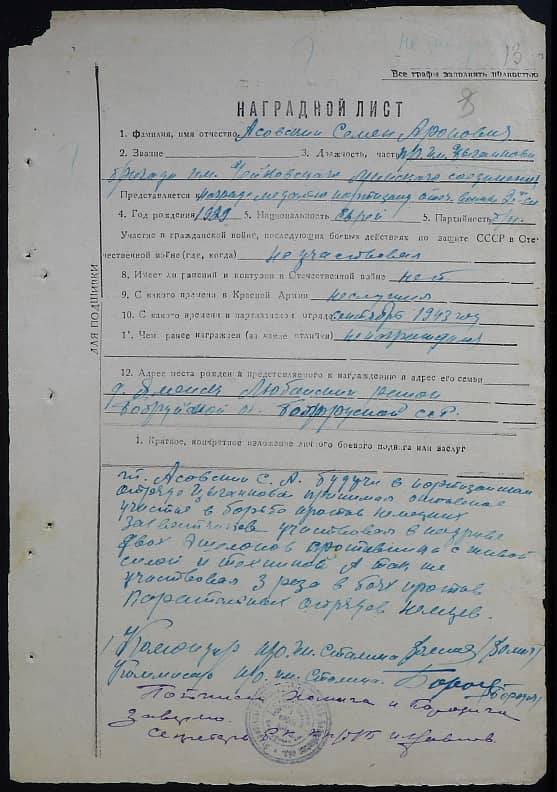 13
Все графы заполнять полностью
8
НАГРАДНОЙ ЛИСТ
1. Фамилия, имя отчество Асовский Семен Аронович
2. Звание 3. Должность, часть п/о им. Цыганкова
бригада им. Чайковского Минского соединения
Представляется к награде медалью партизану отеч. войны 2й ст.
4. Год рождения 1929 5. Национальность еврей 5. Партийность
Участие в гражданской войне, последующих боевых действиях по защите СССР в Оте-
чественной войне (где, когда) не участвовал
8. Имеет ли ранения и контузии в Отечественной войне нет
9. С какого времени в Красной Армии неслужил
10. С какого времени в партизанском отряде сентябрь 1943 год
11. Чем ранее награжден (за какие отличия) ненагражден
12. Адрес места рождения представляемого к награждению и адрес его семьи
д. Любанский район
Бобруйской о.
ДЛЯ ПОДШИВКИ
1. Краткое, конкретное изложение личного боевого подвига или заслуг
т. Асовский С. А. будучи в партизанском
отряде Цыганкова принимал активное
участие в борьбе против немецких
захватчиков участвовал в подрыве
двух эшелонов противника с живой
силой и техникой А так же
участвовал 3 раза в боях против
отрядов немцев.
Командир п/о. им. Сталина
Комиссар п/о. им. Сталина
и
Заверяю.
Секретарь РК